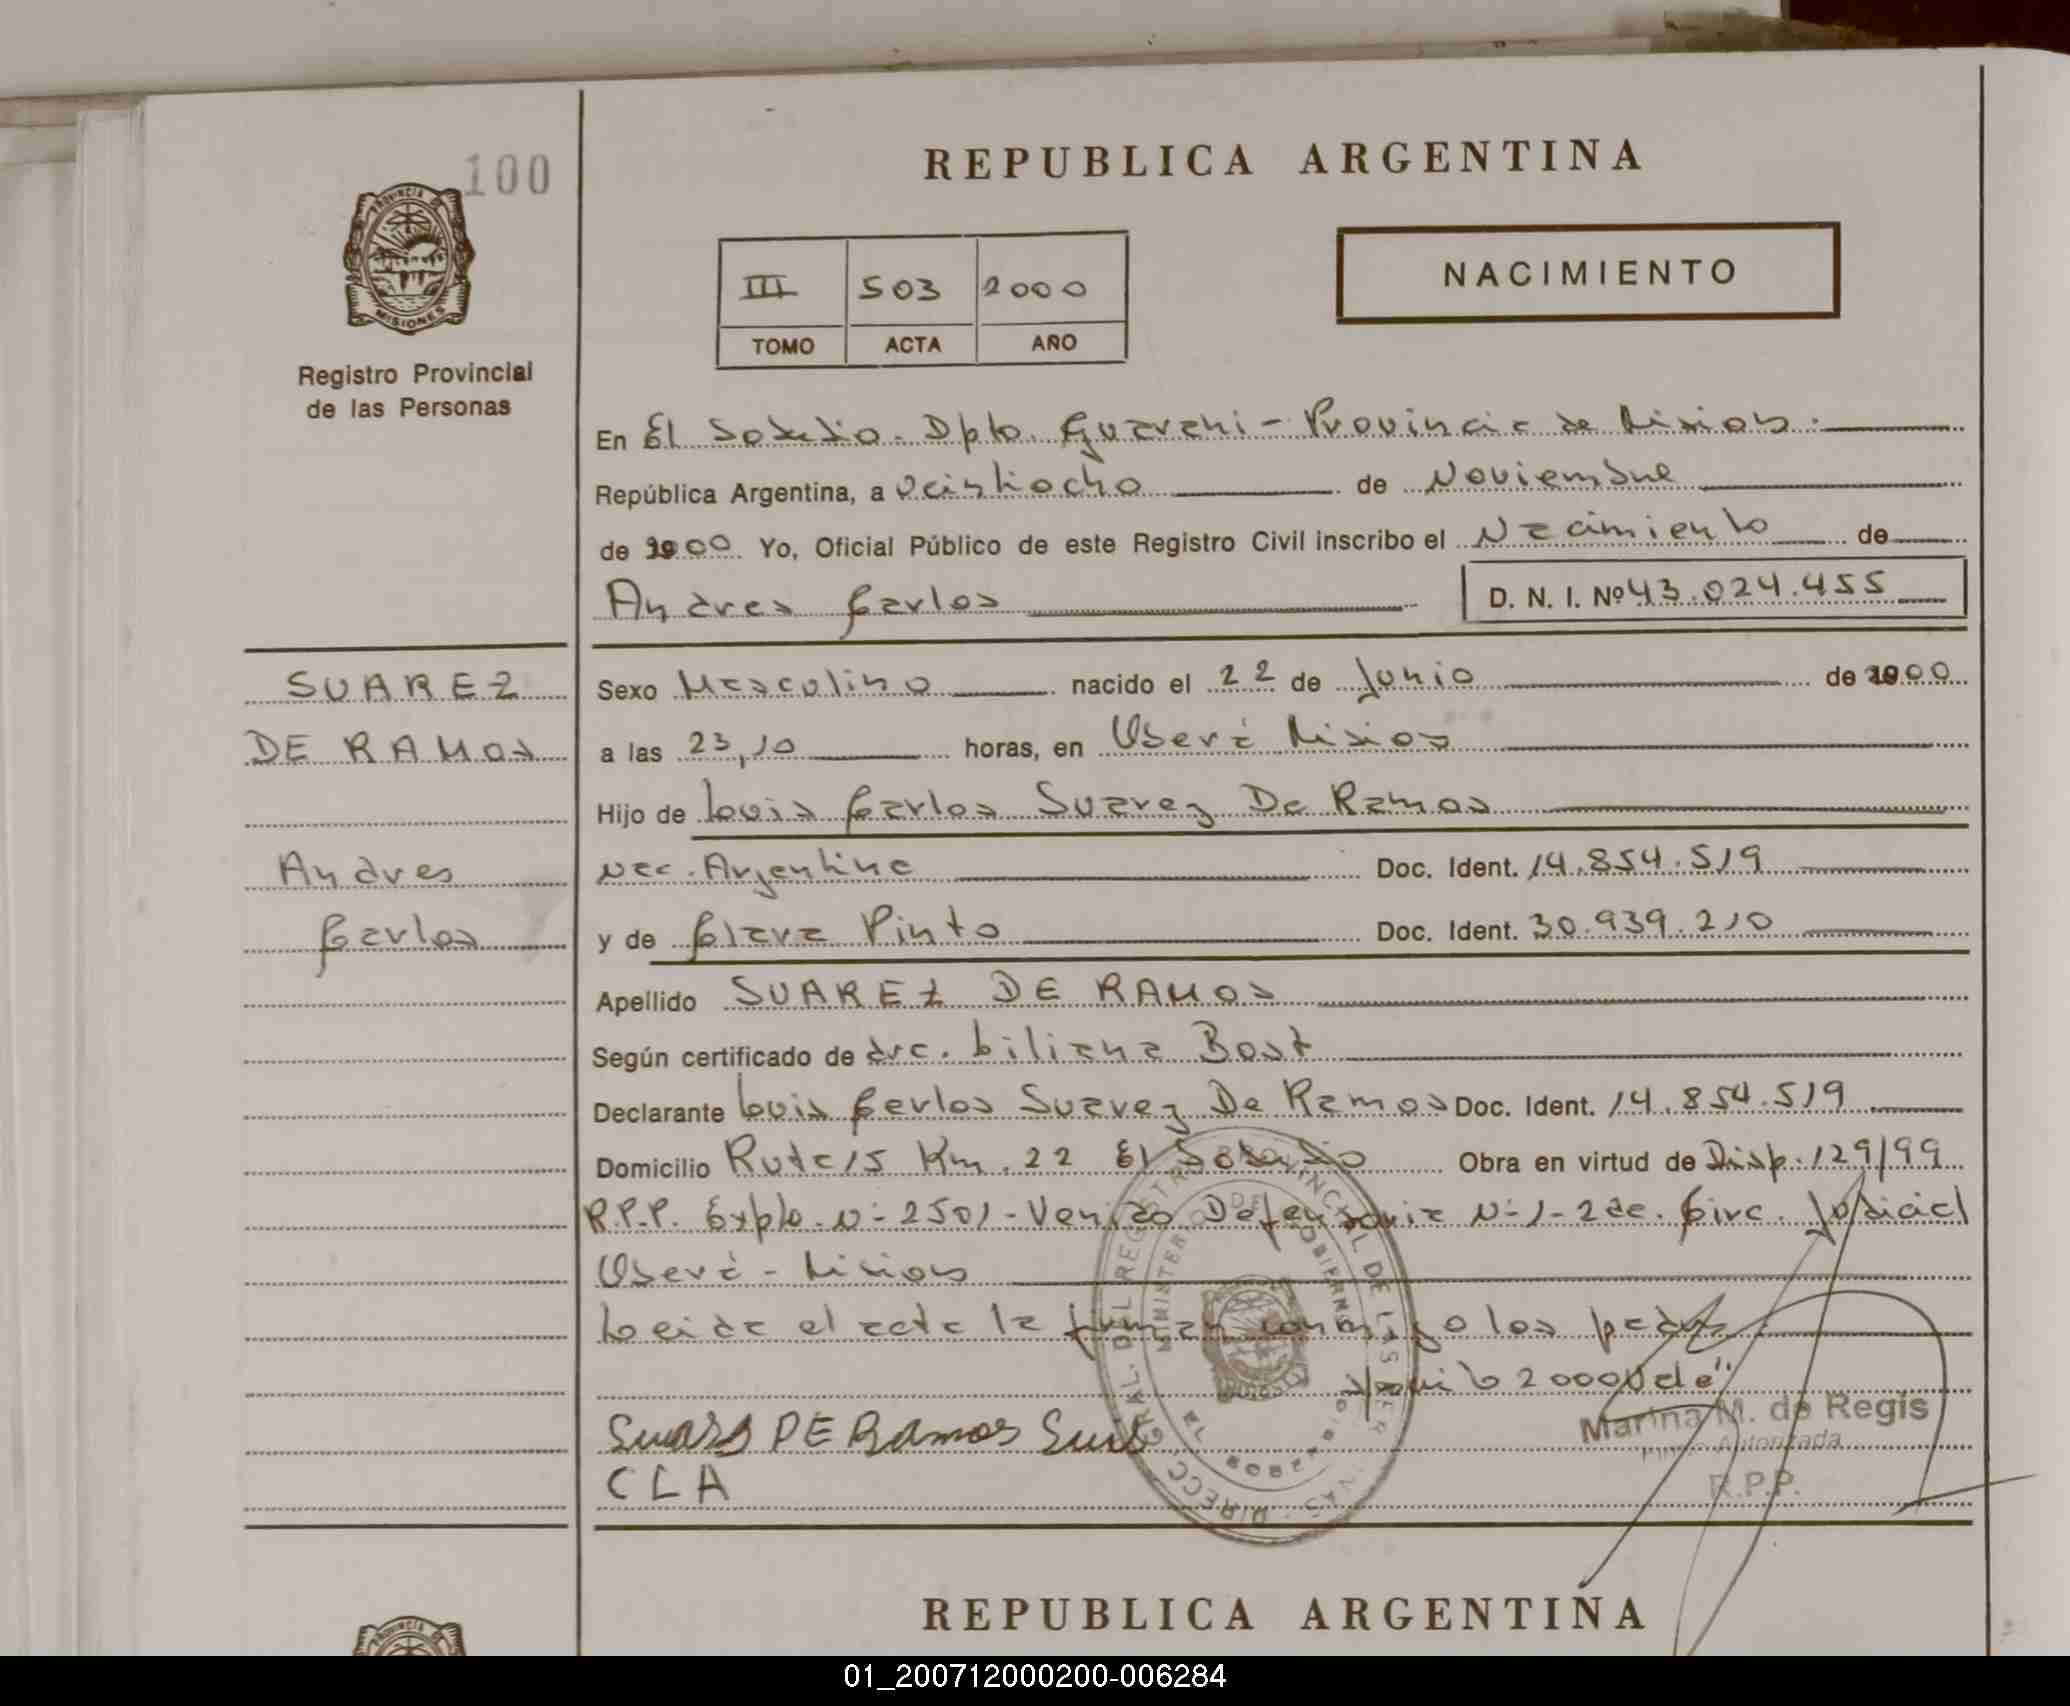 100
PROVINCIA DE
MISIONES
Registro Provincial
de las Personas
REPUBLICA ARGENTINA
III 503 2000
TOMO ACTA AÑO
NACIMIENTO
En El Soberbio. Dpto. Guarani - Provincia de Misiones.
República Argentina, a Veintiocho de Noviembre
de 2000 Yo, Oficial Público de este Registro Civil inscribo el Nacimiento de
Andres Carlos D. N. I. Nº 43.024.455
SUAREZ
DE RAMOS
Andres
Carlos
Sexo Masculino nacido el 22 de Junio de 2000
a las 23,10 horas, en Oberá Misiones
Hijo de Louis Carlos Suarez De Ramos
nac. Argentina Doc. Ident. 14.854.519
y de Clara Pinto Doc. Ident. 30.939.210
Apellido SUAREZ DE RAMOS
Según certificado de dra. Liliana Bost
Declarante Louis Carlos Suarez De Ramos Doc. Ident. 14.854.519
Domicilio Ruta 15 Km. 22 El Soberbio Obra en virtud de Disp. 129/99
R.P.P. Expte. Nº 2501 - Venido Defensoria Nº 1 - 2da. Circ. Judicial
Oberá - Misiones
Leida el acta la firman conmigo los padres
2000 Vale"
Suares DE Ramos Luis
CLA
Marina M. de Regis
Firma Autorizada
R.P.P.
REPUBLICA ARGENTINA
01_200712000200-006284